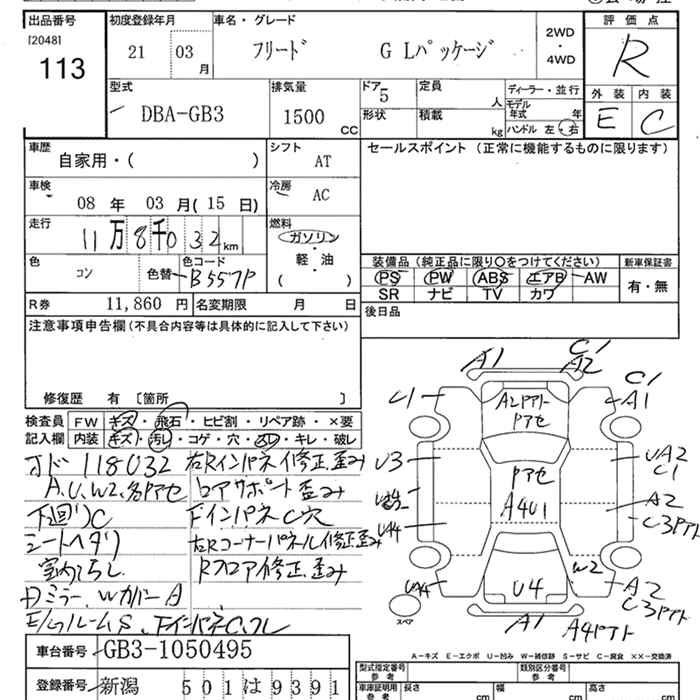 出品番号 初度登録年月 車名・グレード 2WD・4WD 評価点
[2048] 113
21 03 月 フリード G Lパッケージ R
外装 内装
E C
型式 排気量 ドア 定員 ディーラー・並行
DBA-GB3 1500 CC 5 人 モデル年式 年
形状 積載 kg ハンドル 左・右
車歴 シフト セールスポイント (正常に機能するものに限ります)
自家用・( ) AT
車検 冷房
08 年 03 月(15 日) AC
走行 燃料
11万8千032km ガソリン・軽・油
色 色替 色コード ( )
コン B557P
装備品 (純正品に限り○をつけてください) 新車保証書
PS PW ABS エアB AW 有・無
SR ナビ TV カワ
R券 11,860 円 名変期限 月 日 後日品
注意事項申告欄 (不具合内容等は具体的に記入して下さい)
修復歴 有 [箇所 ]
検査員記入欄 FW キズ・飛石・ヒビ割・リペア跡・×要
内装 キズ・汚レ・コゲ・穴・スレ・キレ・破レ
118032 右Rインパネ修正,歪み
A,U,W2,各Pアセ リアサポート歪み
下廻りC FインパネC穴
シートヘタリ 左Rコーナーパネル修正,歪み
室内汚れ Rフロア修正,歪み
ミラー、WカバーA
A1 C1 A2
C1 A2Pアト Pアセ C1 A1
U3 Pアセ UA2 C1
A4U1 A2
UA4 C3Pアト
UA4 U4 W2 A2
C3Pアト
スペア A1 A4Pアト
A-キズ E-エクボ U-凹み W-補修跡 S-サビ C-腐食 XX-交換済
車台番号 GB3-1050495
登録番号 新潟 501は9391
型式指定番号 参考 類別区分番号 参考
車庫証明用 参考 長さ cm 幅 cm 高さ cm